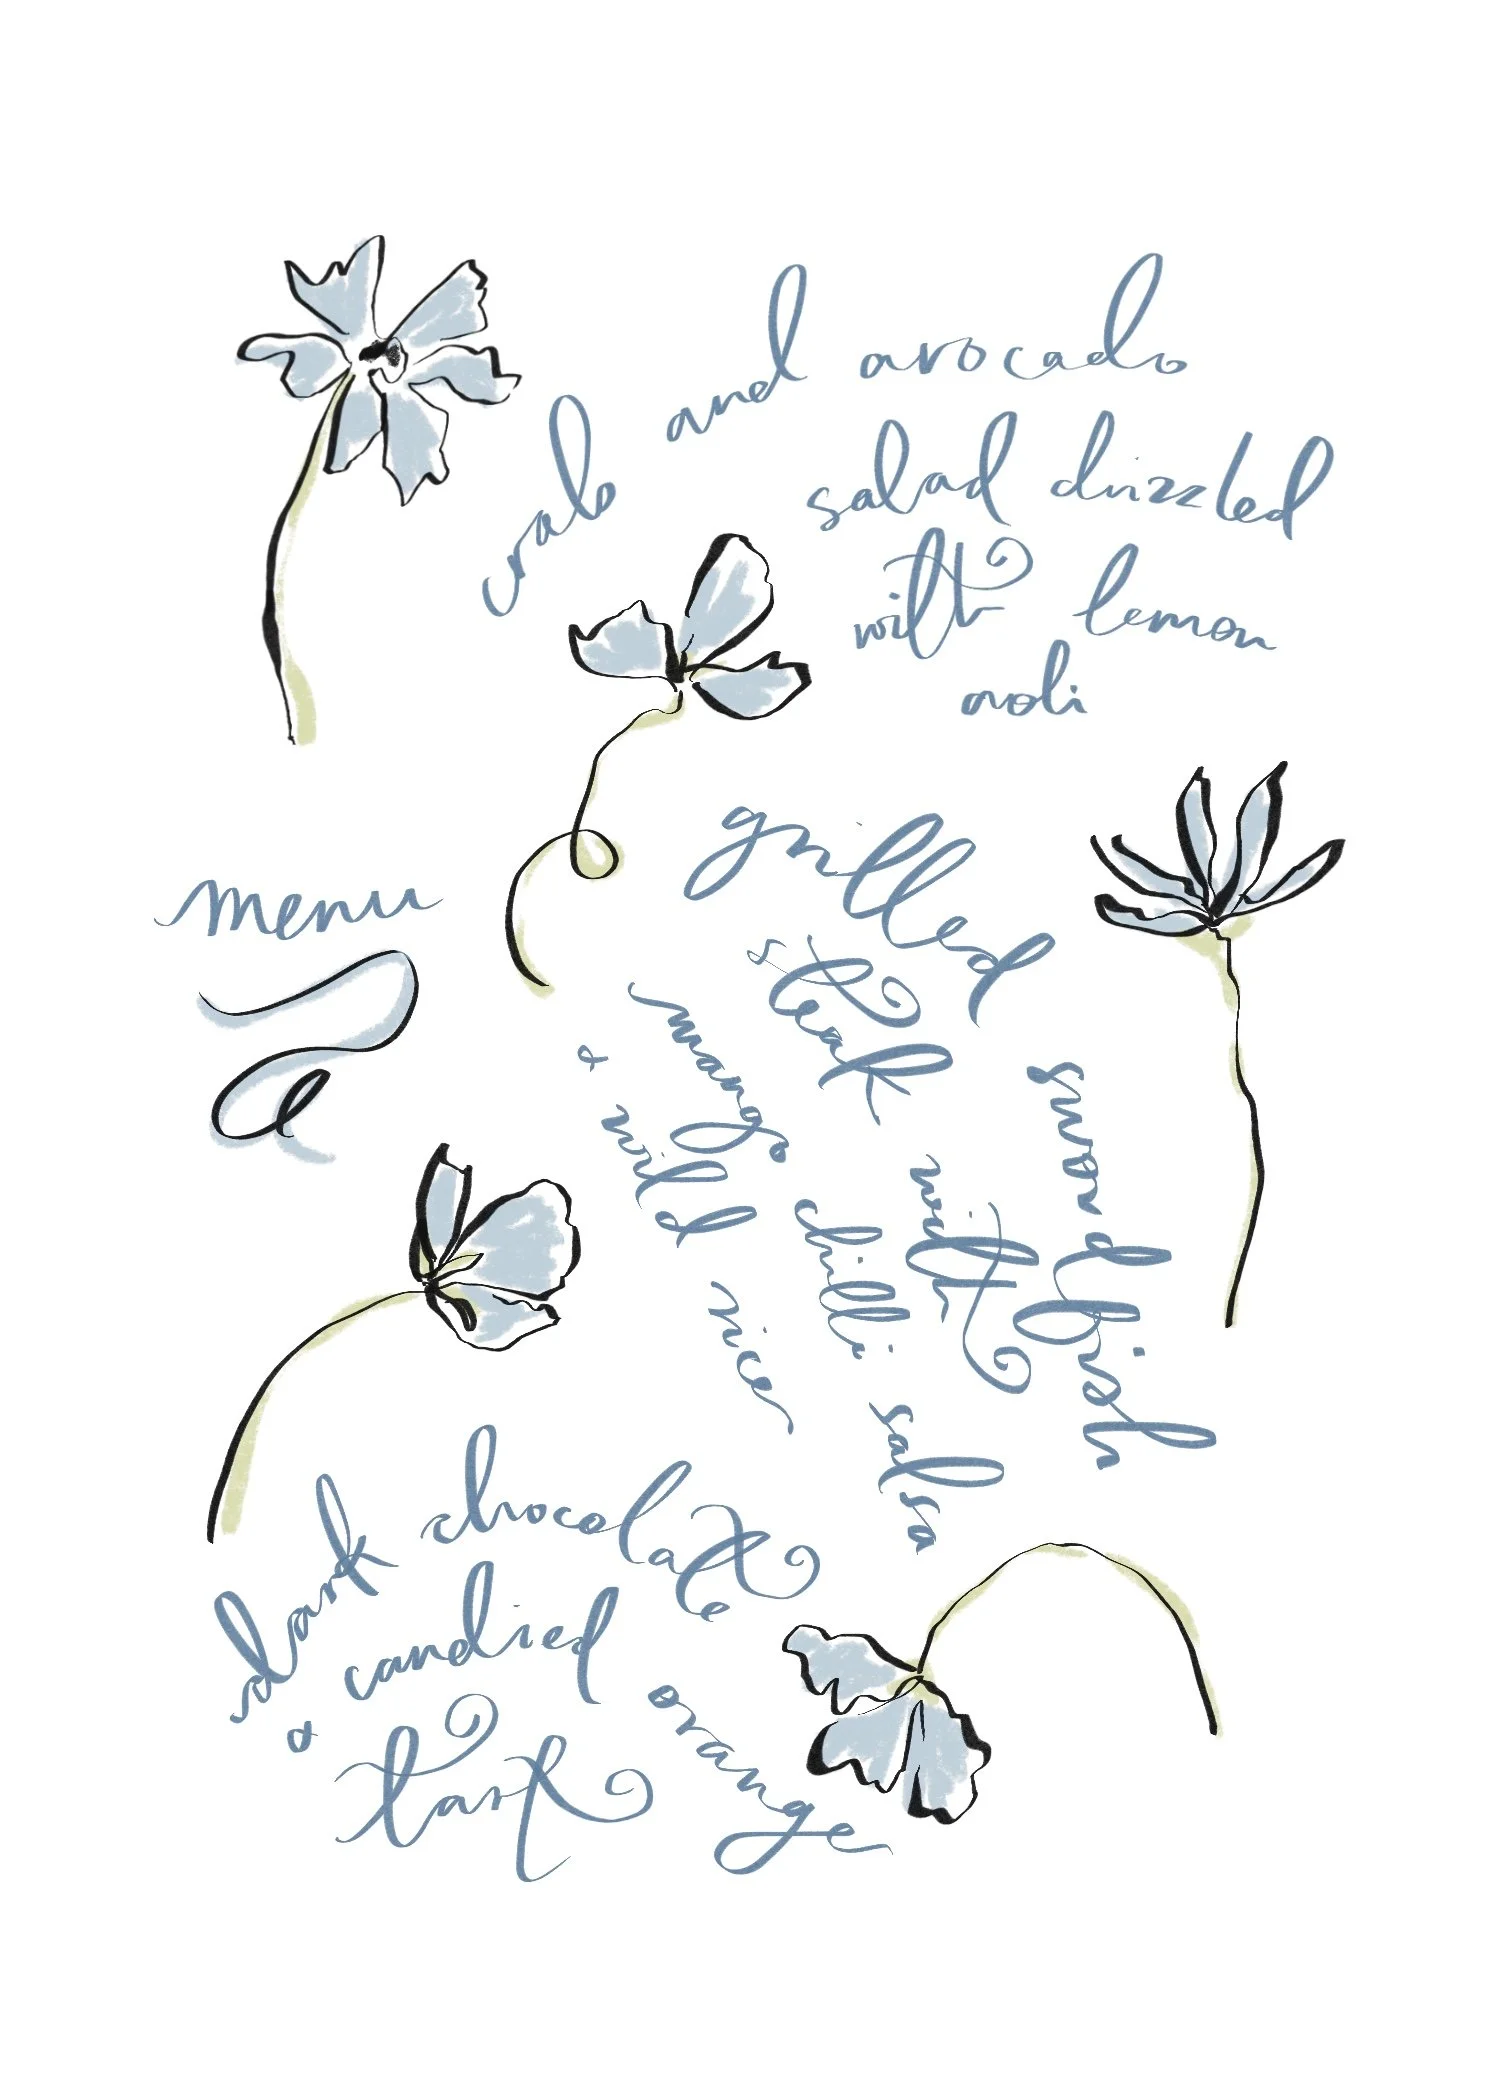 menu
crab and avocado
salad drizzled
with lemon
aoli
grilled swordfish
steak with
mango chilli salsa
& wild rice
dark chocolate
& candied orange
tart